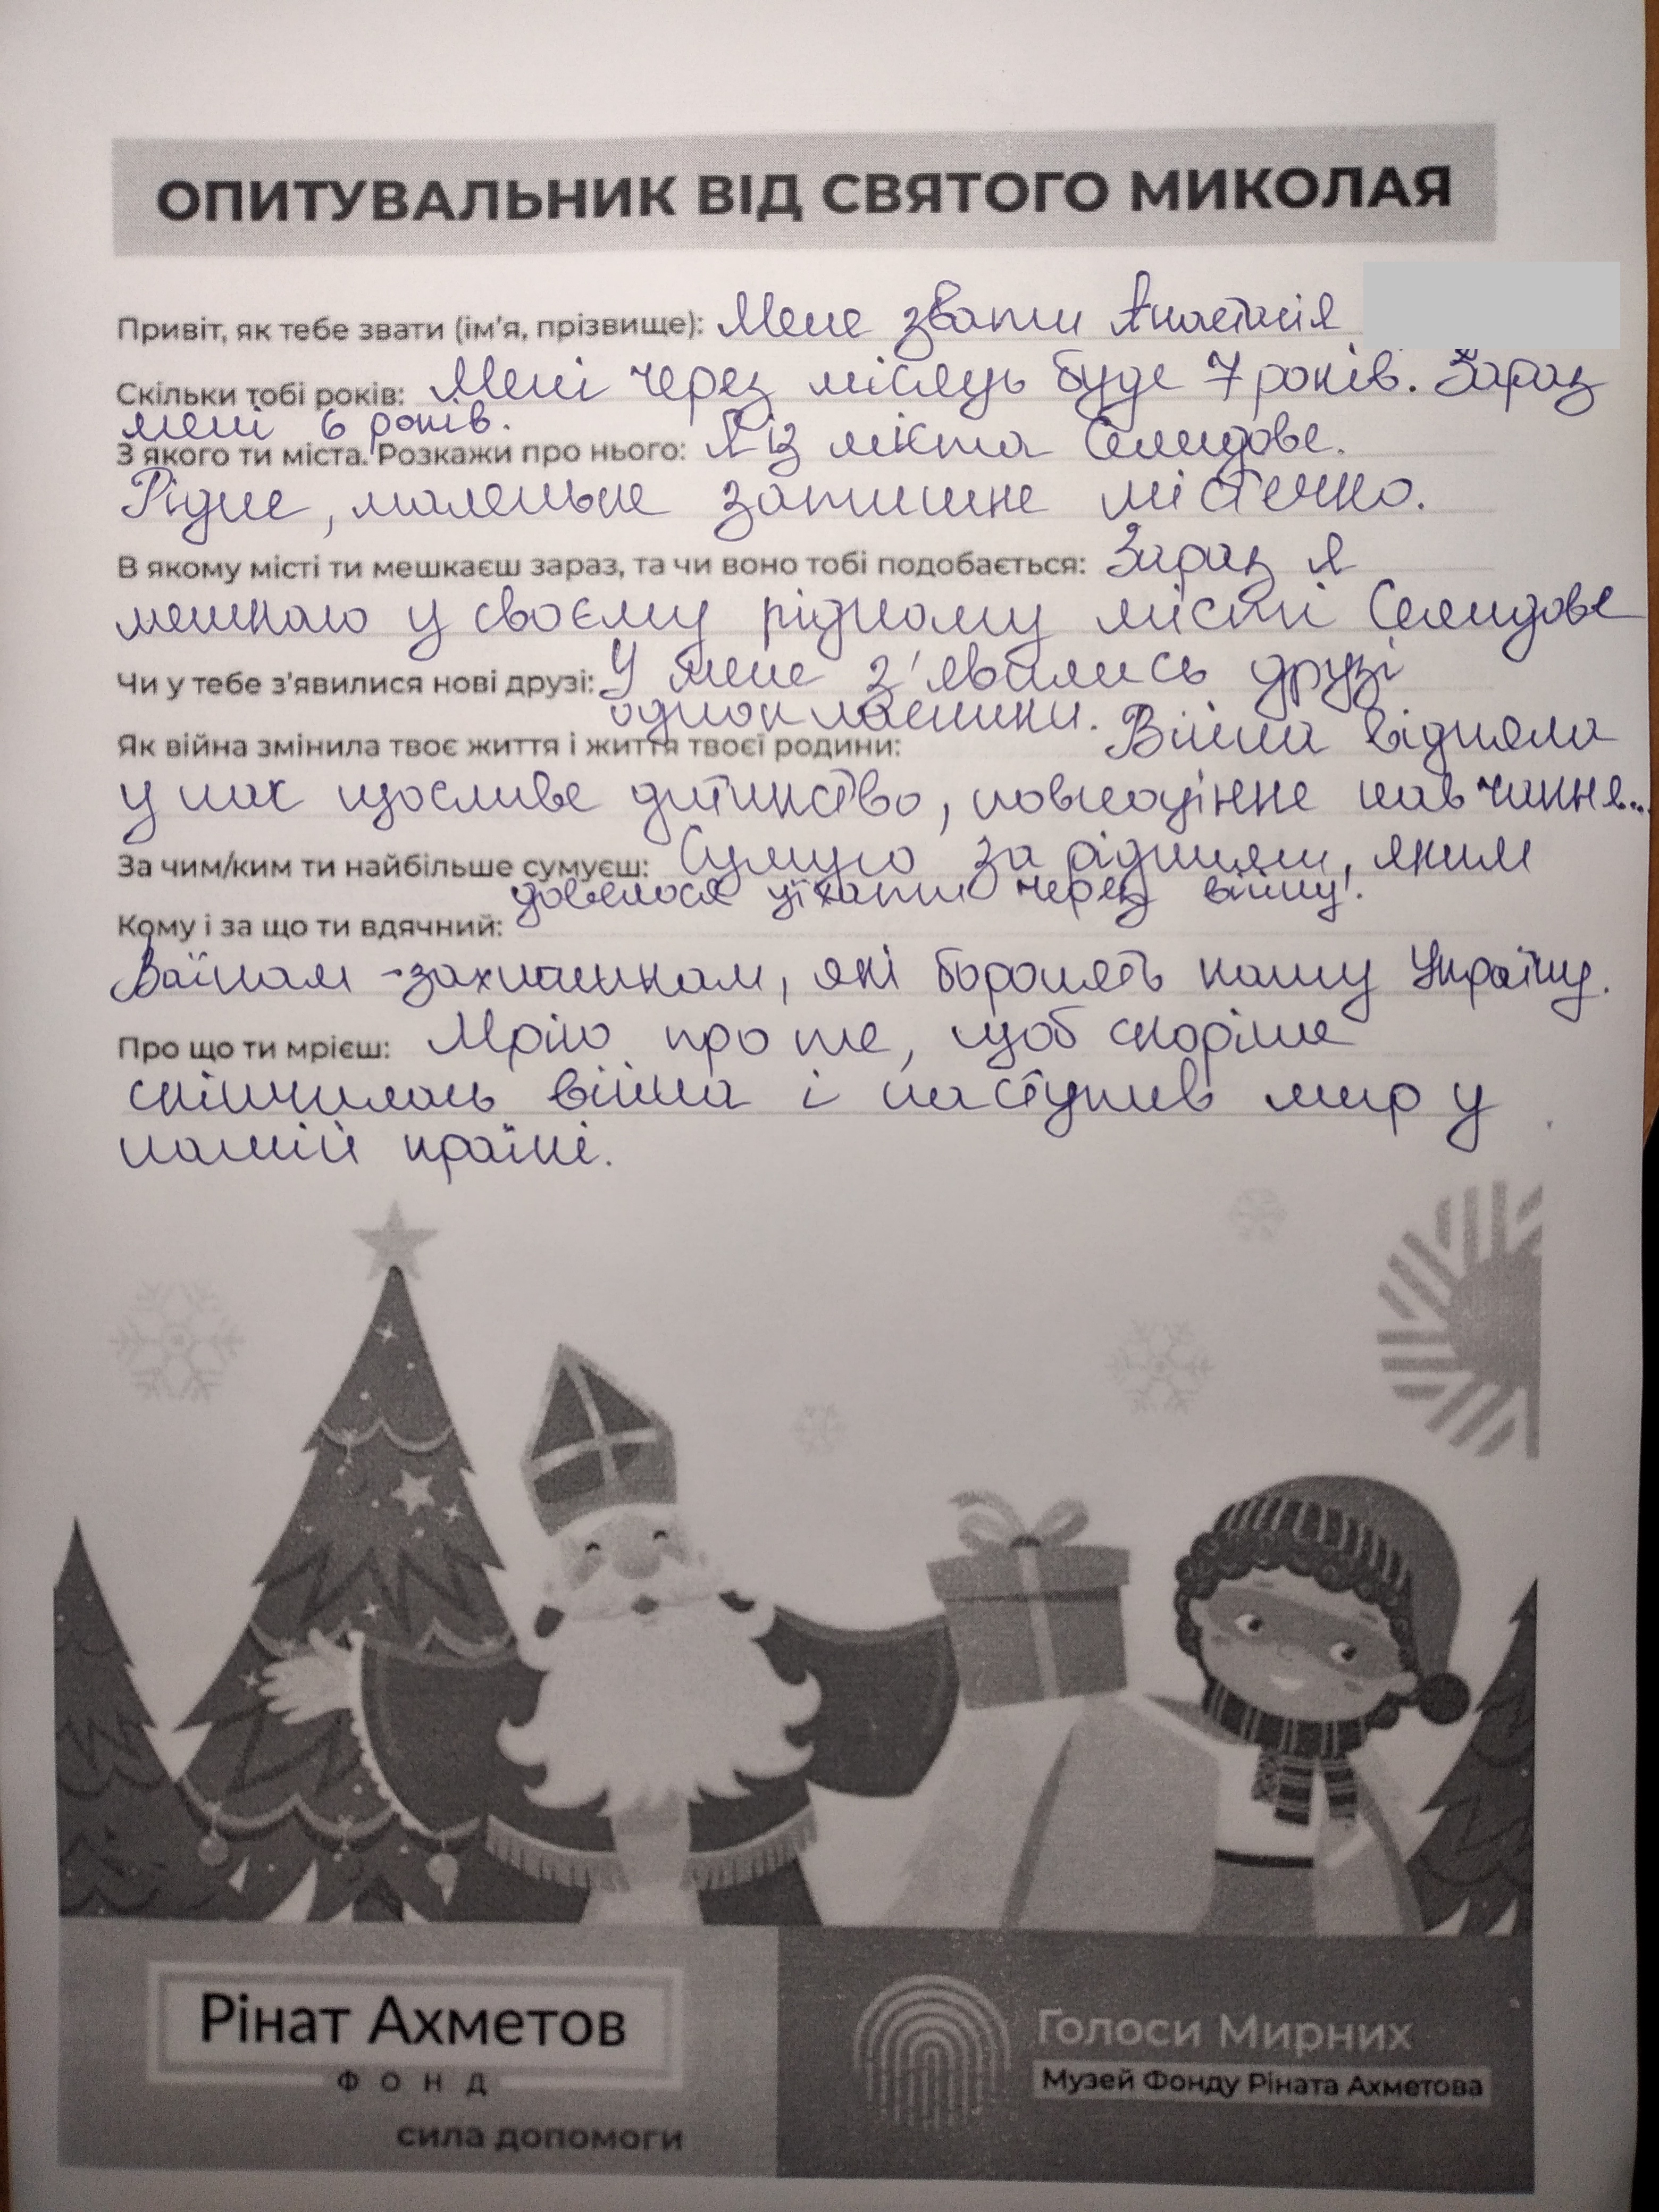 ОПИТУВАЛЬНИК ВІД СВЯТОГО МИКОЛАЯ
Привіт, як тебе звати (ім'я, прізвище): Мене звати Анастасія
Скільки тобі років: Мені через місяць буде 7 років. Зараз
мені 6 років.
З якого ти міста. Розкажи про нього: Я із міста Селидове.
Рідне, маленьке затишне містечко.
В якому місті ти мешкаєш зараз, та чи воно тобі подобається: Зараз я
мешкаю у своєму рідному місті Селидове
Чи у тебе з'явилися нові друзі: У мене з'явились друзі
однокласники.
Як війна змінила твоє життя і життя твоєї родини: Війна відняла
у нас щасливе дитинство, повноцінне навчання...
За чим/ким ти найбільше сумуєш: Сумую за рідними, яким
довелося уїхати через війну!
Кому і за що ти вдячний:
Воїнам - захисникам, які боронять нашу Україну.
Про що ти мрієш: Мрію про те, щоб скоріше
скінчилась війна і наступив мир у
нашій країні.
Рінат Ахметов
ФОНД
сила допомоги
Голоси Мирних
Музей Фонду Ріната Ахметова